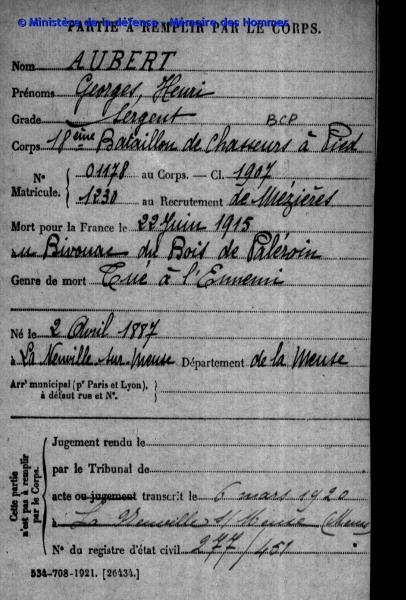 © Ministère de la défense - Mémoire des Hommes
PARTIE À REMPLIR PAR LE CORPS.
Nom AUBERT
Prénoms Georges, Henri
Grade Sergent BCP
Corps 18ème Bataillon de Chasseurs à Pied
N° 01178 au Corps. — Cl. 1907
Matricule. 1230 au Recrutement de Mézières
Mort pour la France le 22 Juin 1915
au Bivouac du Bois de
Genre de mort Tué à l'Ennemi
Né le 2 Avril 1887
à La Neuville-sur-Meuse Département de la Meuse
Arrᵗ municipal (pʳ Paris et Lyon),
à défaut rue et N°.
Cette partie n'est pas à remplir par le Corps.
Jugement rendu le
par le Tribunal de
acte ou jugement transcrit le 6 mars 1920
à La Neuville s/ Meuse (Meuse)
N° du registre d'état civil 277/451
534-708-1921. [26434.]